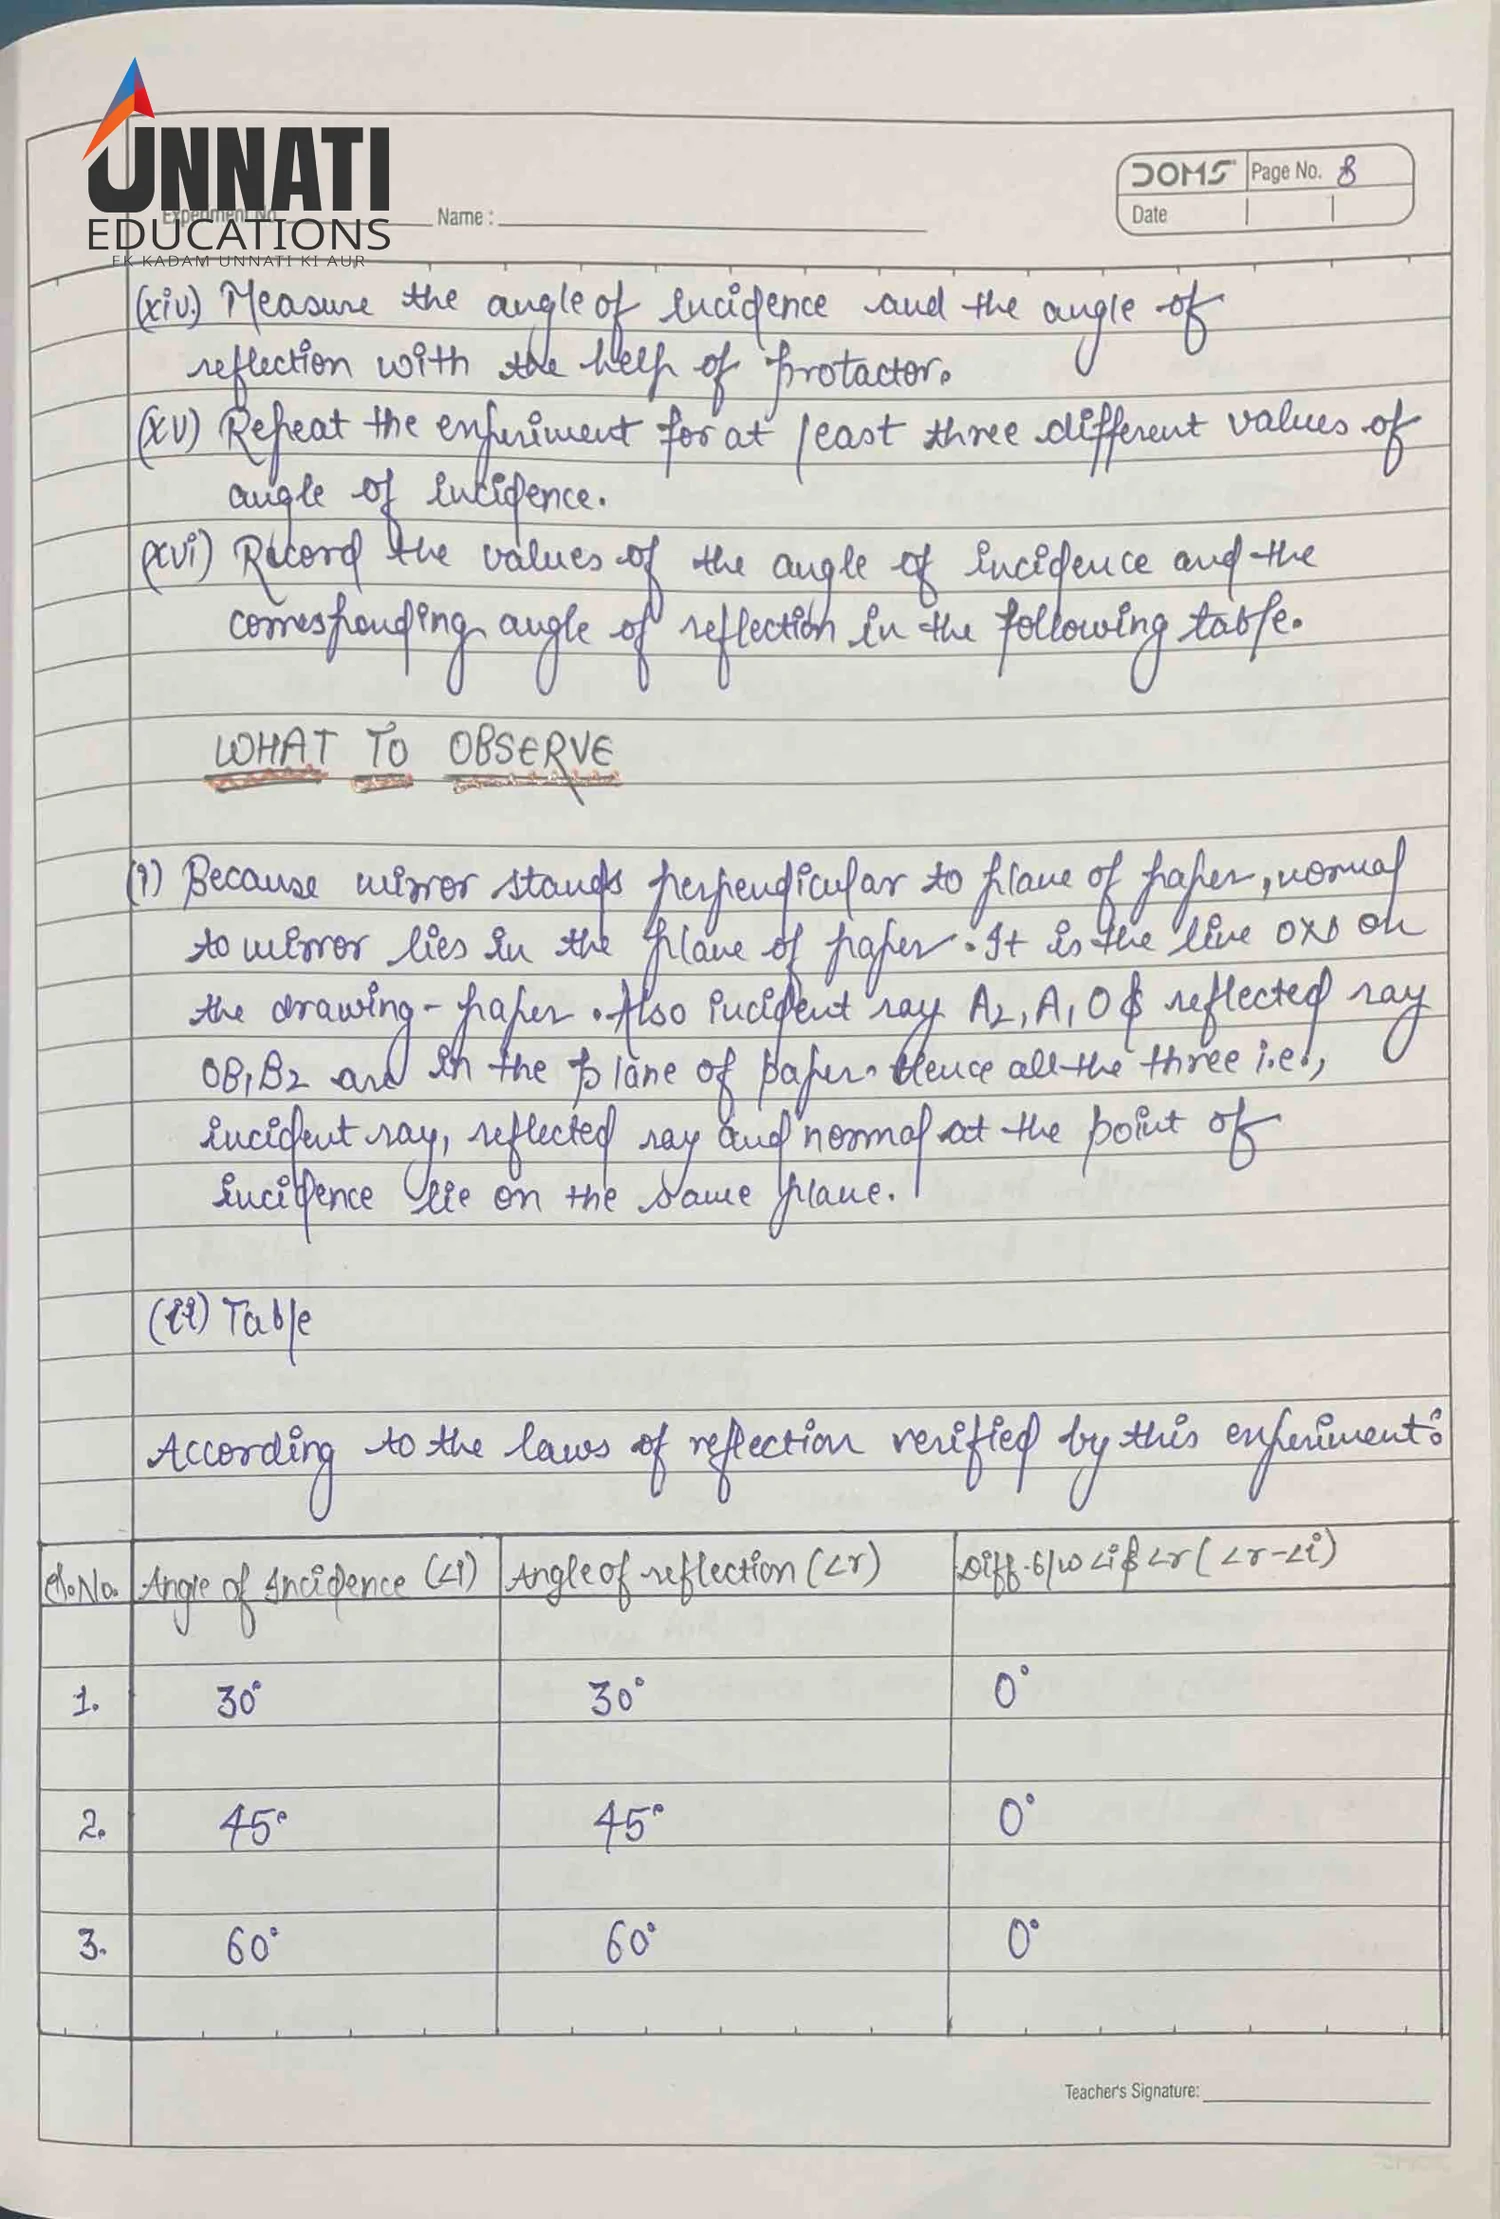 UNNATI
EDUCATIONS
EK KADAM UNNATI KI AUR
Experiment No. Name :
DOMS Page No. 8
Date
(xiv) Measure the angle of incidence and the angle of
reflection with the help of protactor.
(xv) Repeat the experiment for at least three different values of
angle of incidence.
(xvi) Record the values of the angle of incidence and the
corresponding angle of reflection in the following table.
WHAT TO OBSERVE
(i) Because mirror stands perpendicular to plane of paper, normal
to mirror lies in the plane of paper. It is the line on
the drawing-paper. Also incident ray A2, A, O & reflected ray
OB, B2 are in the plane of paper. Hence all the three i.e.,
incident ray, reflected ray and normal at the point of
incidence lie on the same plane.
(ii) Table
According to the laws of reflection verified by this experiment:
S.No. Angle of Incidence (∠i) Angle of reflection (∠r) Diff. b/w ∠i & ∠r (∠r-∠i)
1. 30° 30° 0°
2. 45° 45° 0°
3. 60° 60° 0°
Teacher's Signature: